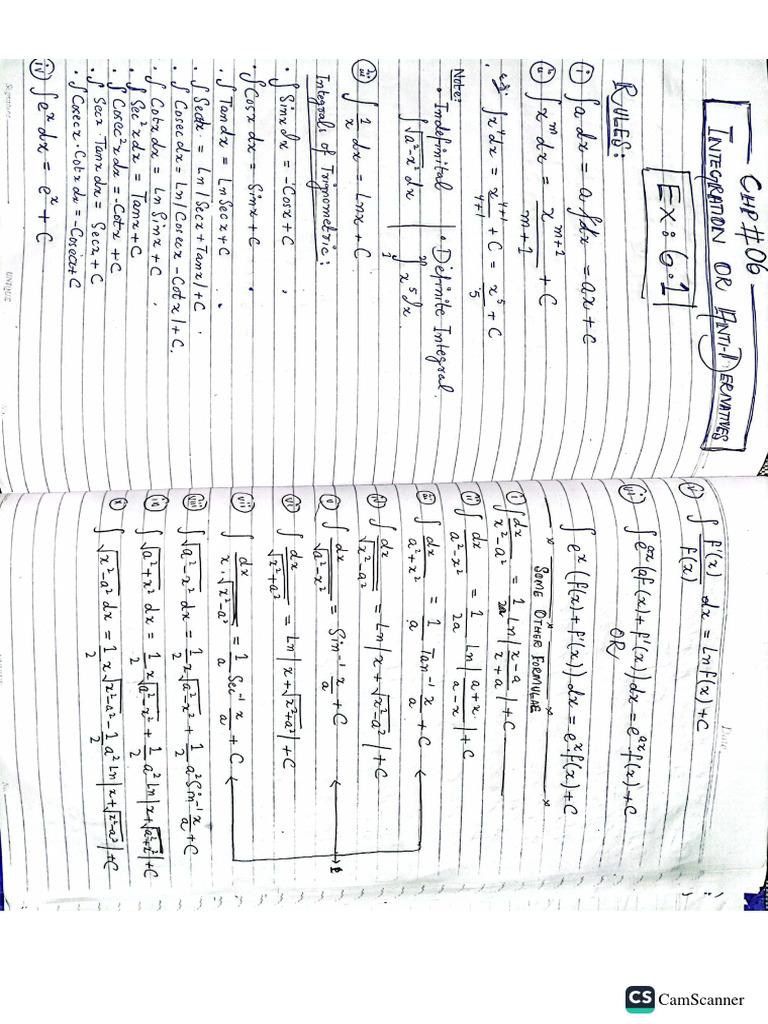 CHP#06
INTEGRATION OR ANTI-DERIVATIVES
Ex: 6.1
RULES:
(i) ∫a dx = a∫dx = ax + C
(ii) ∫x^m dx = x^(m+1)/(m+1) + C
∫x^4 dx = x^(4+1)/(4+1) + C = x^5/5 + C
Note:
• Indefinital • Definite Integral.
∫√(a²-x²) dx | ∫ x^5 dx.
(iii) ∫1/x dx = Lnx + C
Integrals of Trignometric:
• ∫Sinx dx = -Cosx + C
• ∫Cosx dx = Sinx + C
• ∫Tandx = LnSecx + C
• ∫Secdx = Ln|Secx + Tanx| + C
• ∫Cosecdx = Ln|Cosecx - Cotx| + C.
• ∫Cotxdx = LnSinx + C
• ∫Sec²xdx = Tanx + C
• ∫Cosec²xdx = -Cotx + C
• ∫Secx·Tanxdx = Secx + C
• ∫Cosecx·Cotxdx = -Cosecx + C
(iv) ∫e^x dx = e^x + C
Signature
UNIQUE
Date
(v) ∫f'(x)/f(x) dx = Ln f(x) + C
(vi) ∫e^(ax)(af(x) + f'(x))dx = e^(ax).f(x) + C
OR
∫e^x(f(x) + f'(x))dx = e^x.f(x) + C
SOME OTHER FORMULAE
(i) ∫dx/(x²-a²) = 1/2a Ln|(x-a)/(x+a)| + C
(ii) ∫dx/(a²-x²) = 1/2a Ln|(a+x)/(a-x)| + C
(iii) ∫dx/(a²+x²) = 1/a Tan^-1 x/a + C
(iv) ∫dx/√(x²-a²) = Ln|x+√(x²-a²)| + C
(v) ∫dx/√(a²-x²) = Sin^-1 x/a + C
(vi) ∫dx/√(x²+a²) = Ln|x+√(x²+a²)| + C
(vii) ∫dx/(x.√(x²-a²)) = 1/a Sec^-1 x/a + C
(viii) ∫√(a²-x²) dx = 1/2 x√(a²-x²) + 1/2 a² Sin^-1 x/a + C
(ix) ∫√(a²+x²) dx = 1/2 x√(a²-x²) + 1/2 a² Ln|x+√(a²+x²)| + C
(x) ∫√(x²-a²) dx = 1/2 x√(x²-a²) - 1/2 a² Ln|x+√(x²-a²)| + C
CS CamScanner